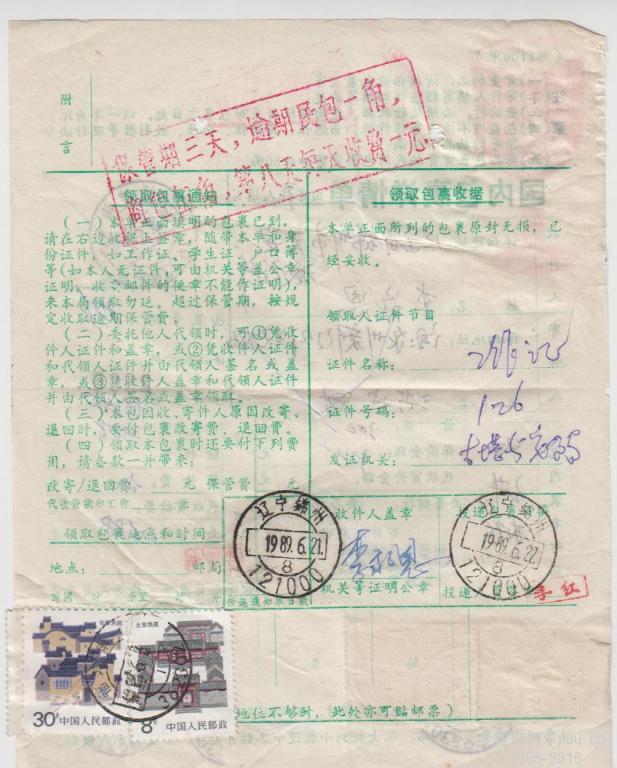 附
言
保管期三天，逾期民包一角，
商包五角，第八天每天收费一元。
领取包裹通知
(一)本单正面填明的包裹已到，
请在右边收据上盖章，随带本单和身
份证件，如工作证、学生证、户口簿
等(如本人无证件，可由机关等盖公章
证明，收音邮件的便章不能作证明)，
来本局领取勿延。超过保管期，按规
定收取逾期保管费。
(二)委托他人代领时，可①凭收
件人证件和盖章，或②凭收件人证件
和代领人证件并由代领人签名或盖
章，或③凭收件人盖章和代领人证件
并由代领人签名或盖章领取。
(三)本包回收、寄件人原因改寄、
退回时，要付包裹改寄费、退回费。
(四)领取本包裹时还要付下列费
用，请备款一并带来：
改寄/退回费 元 保管费 元
代收货款和汇费 元
领取包裹地点和时间
地点： 邮局
领取包裹收据
本单正面所列的包裹原封无损，已
经妥收。
领取人证件节目
证件名称：
证件号码： 126
发证机关：
收件人盖章
机关等证明公章
投递
李红
辽宁锦州
1989.6.21
8
121000
辽宁锦州
1989.6.22
8
121000
北京民居
30分 中国人民邮政
北京民居
8分 中国人民邮政
地位不够时，此处亦可贴邮票)
2005-2016